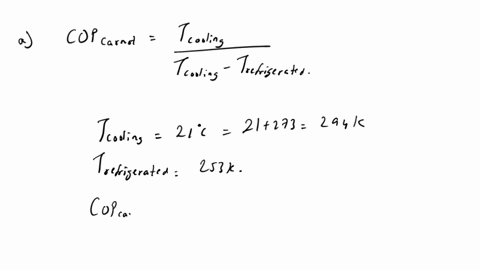 a) COP carnot = Tcooling / Tcooling - Trefrigerated.
Tcooling = 21°C = 21+273 = 294K
Trefrigerated = 253K.
COP ca.